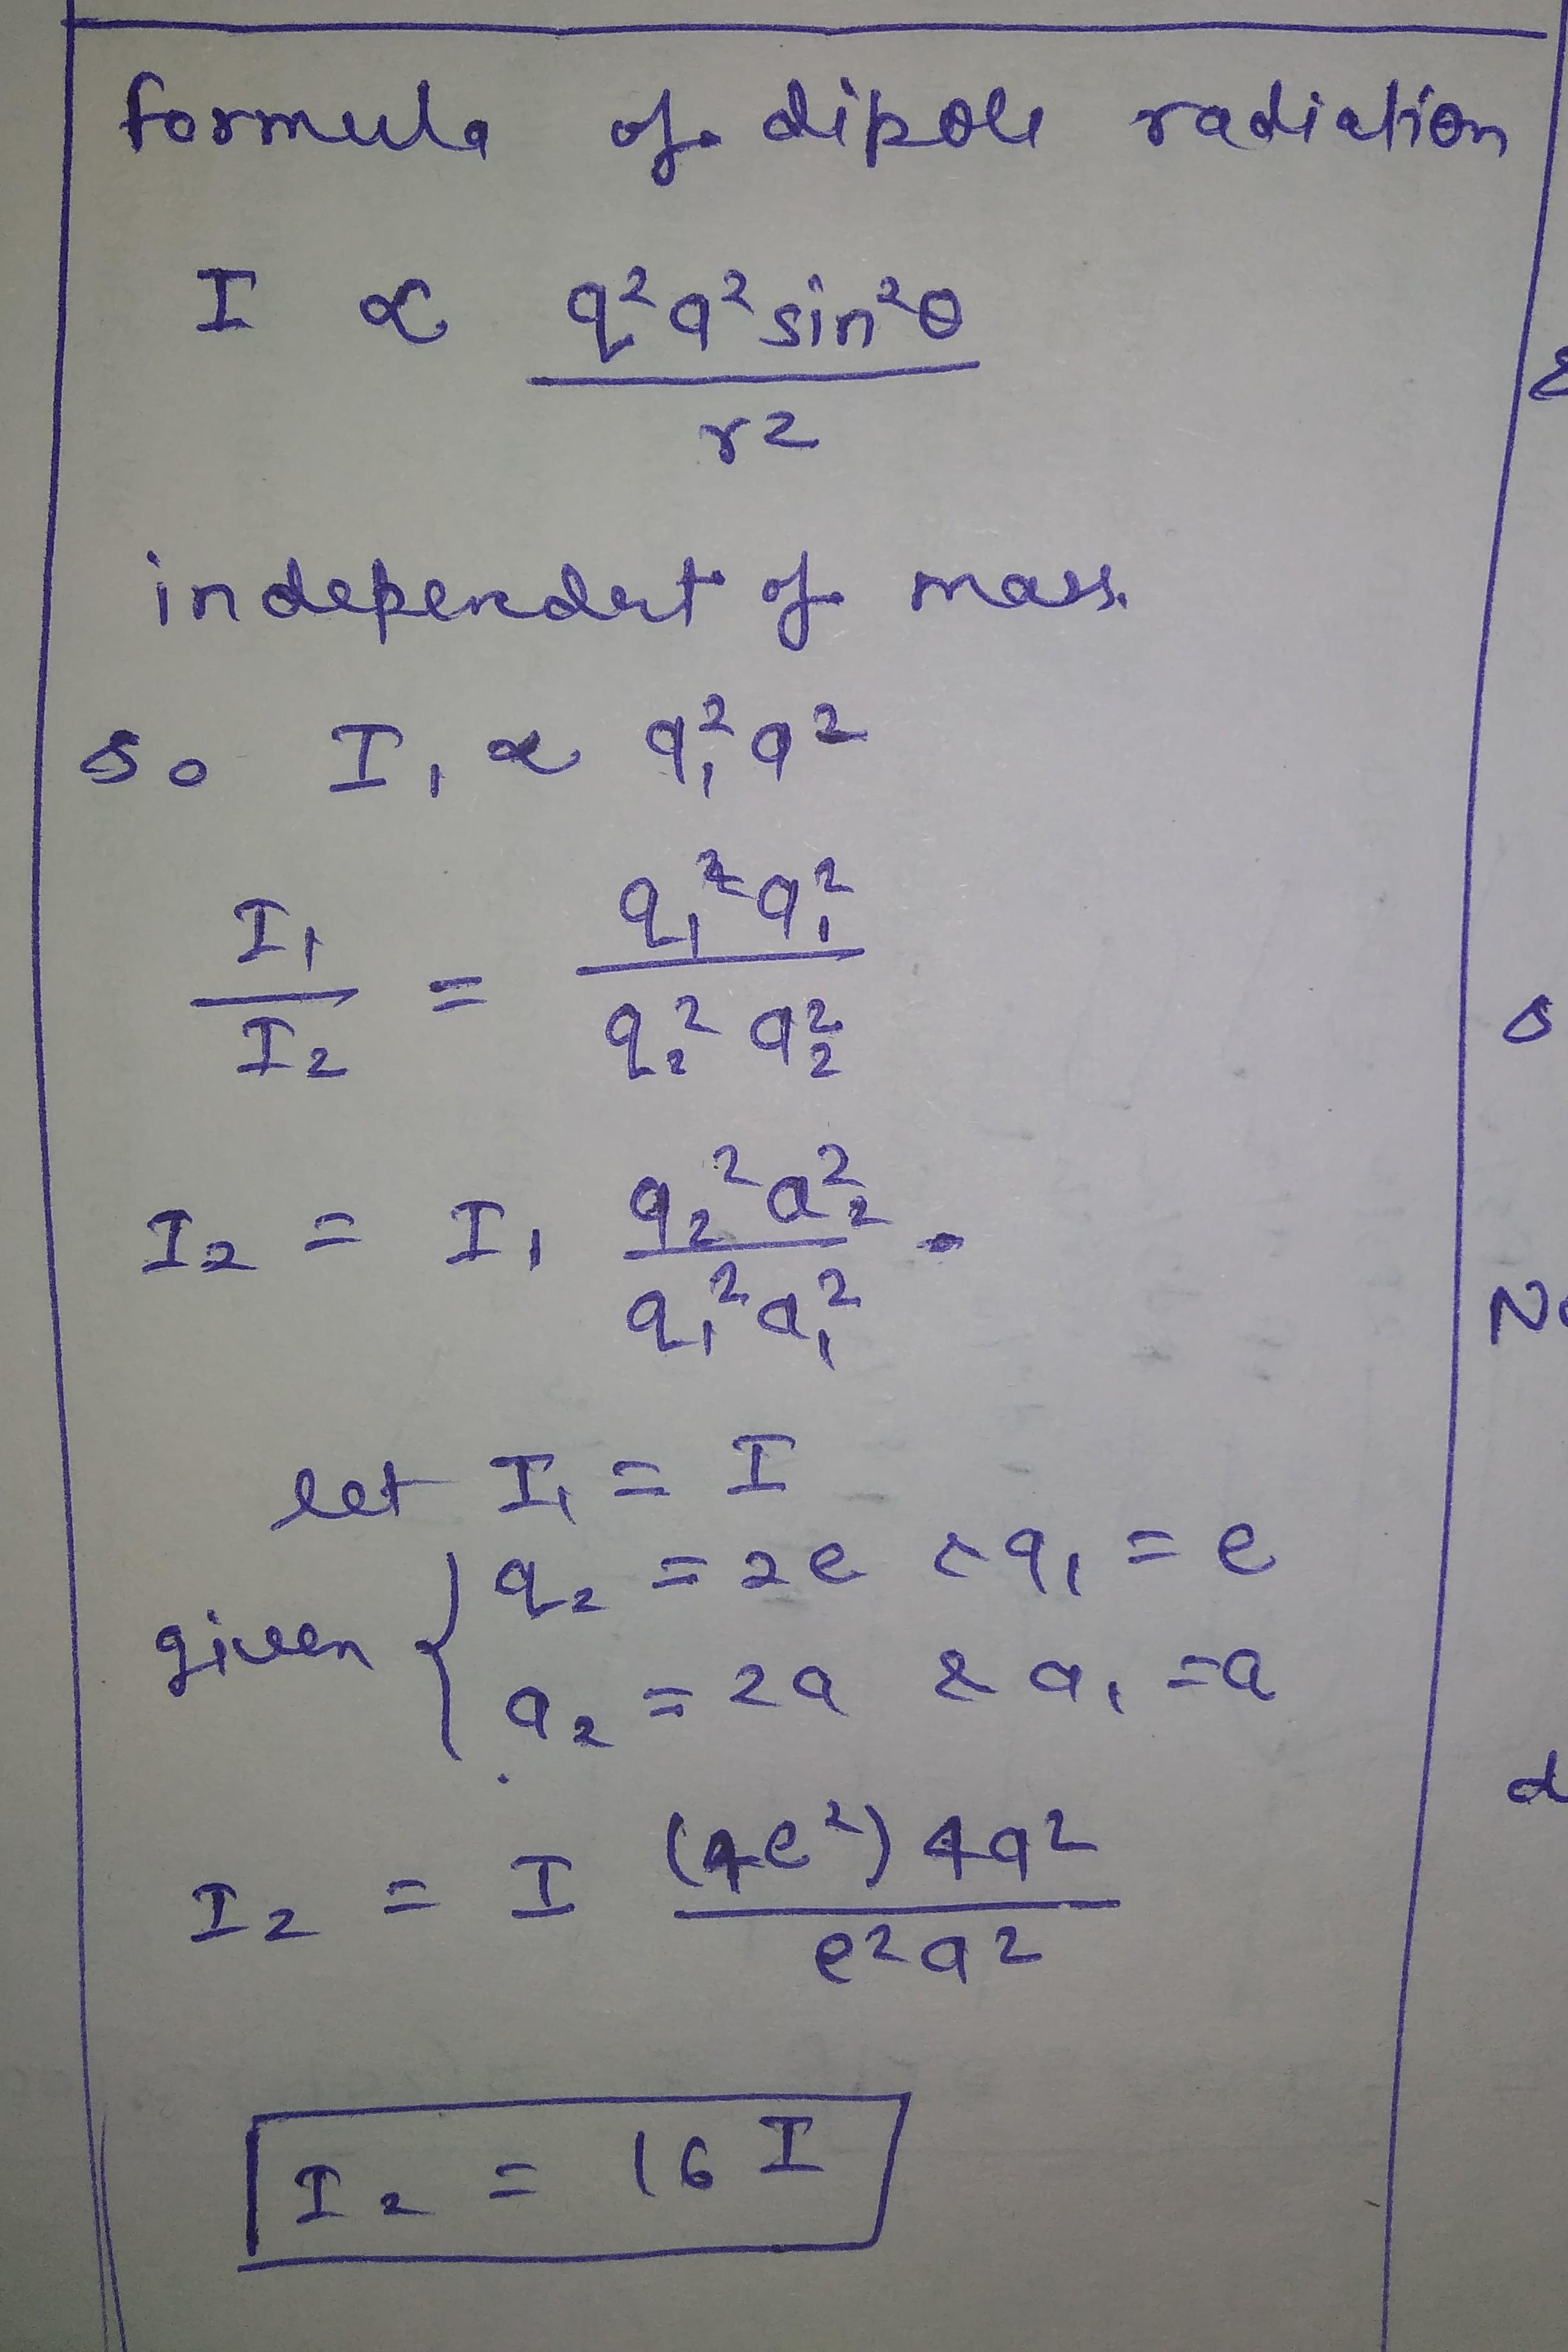 formula of dipole radiation
I ∝ q²a² sin²θ / r²
independent of mass.
so I₁ ∝ q₁²a²
I₁ / I₂ = q₁²a₁² / q₂²a₂²
I₂ = I₁ q₂²a₂² / q₁²a₁²
let I₁ = I
given { q₂ = 2e & q₁ = e
a₂ = 2a & a₁ = a
I₂ = I (4e²)4a² / e²a²
I₂ = 16 I